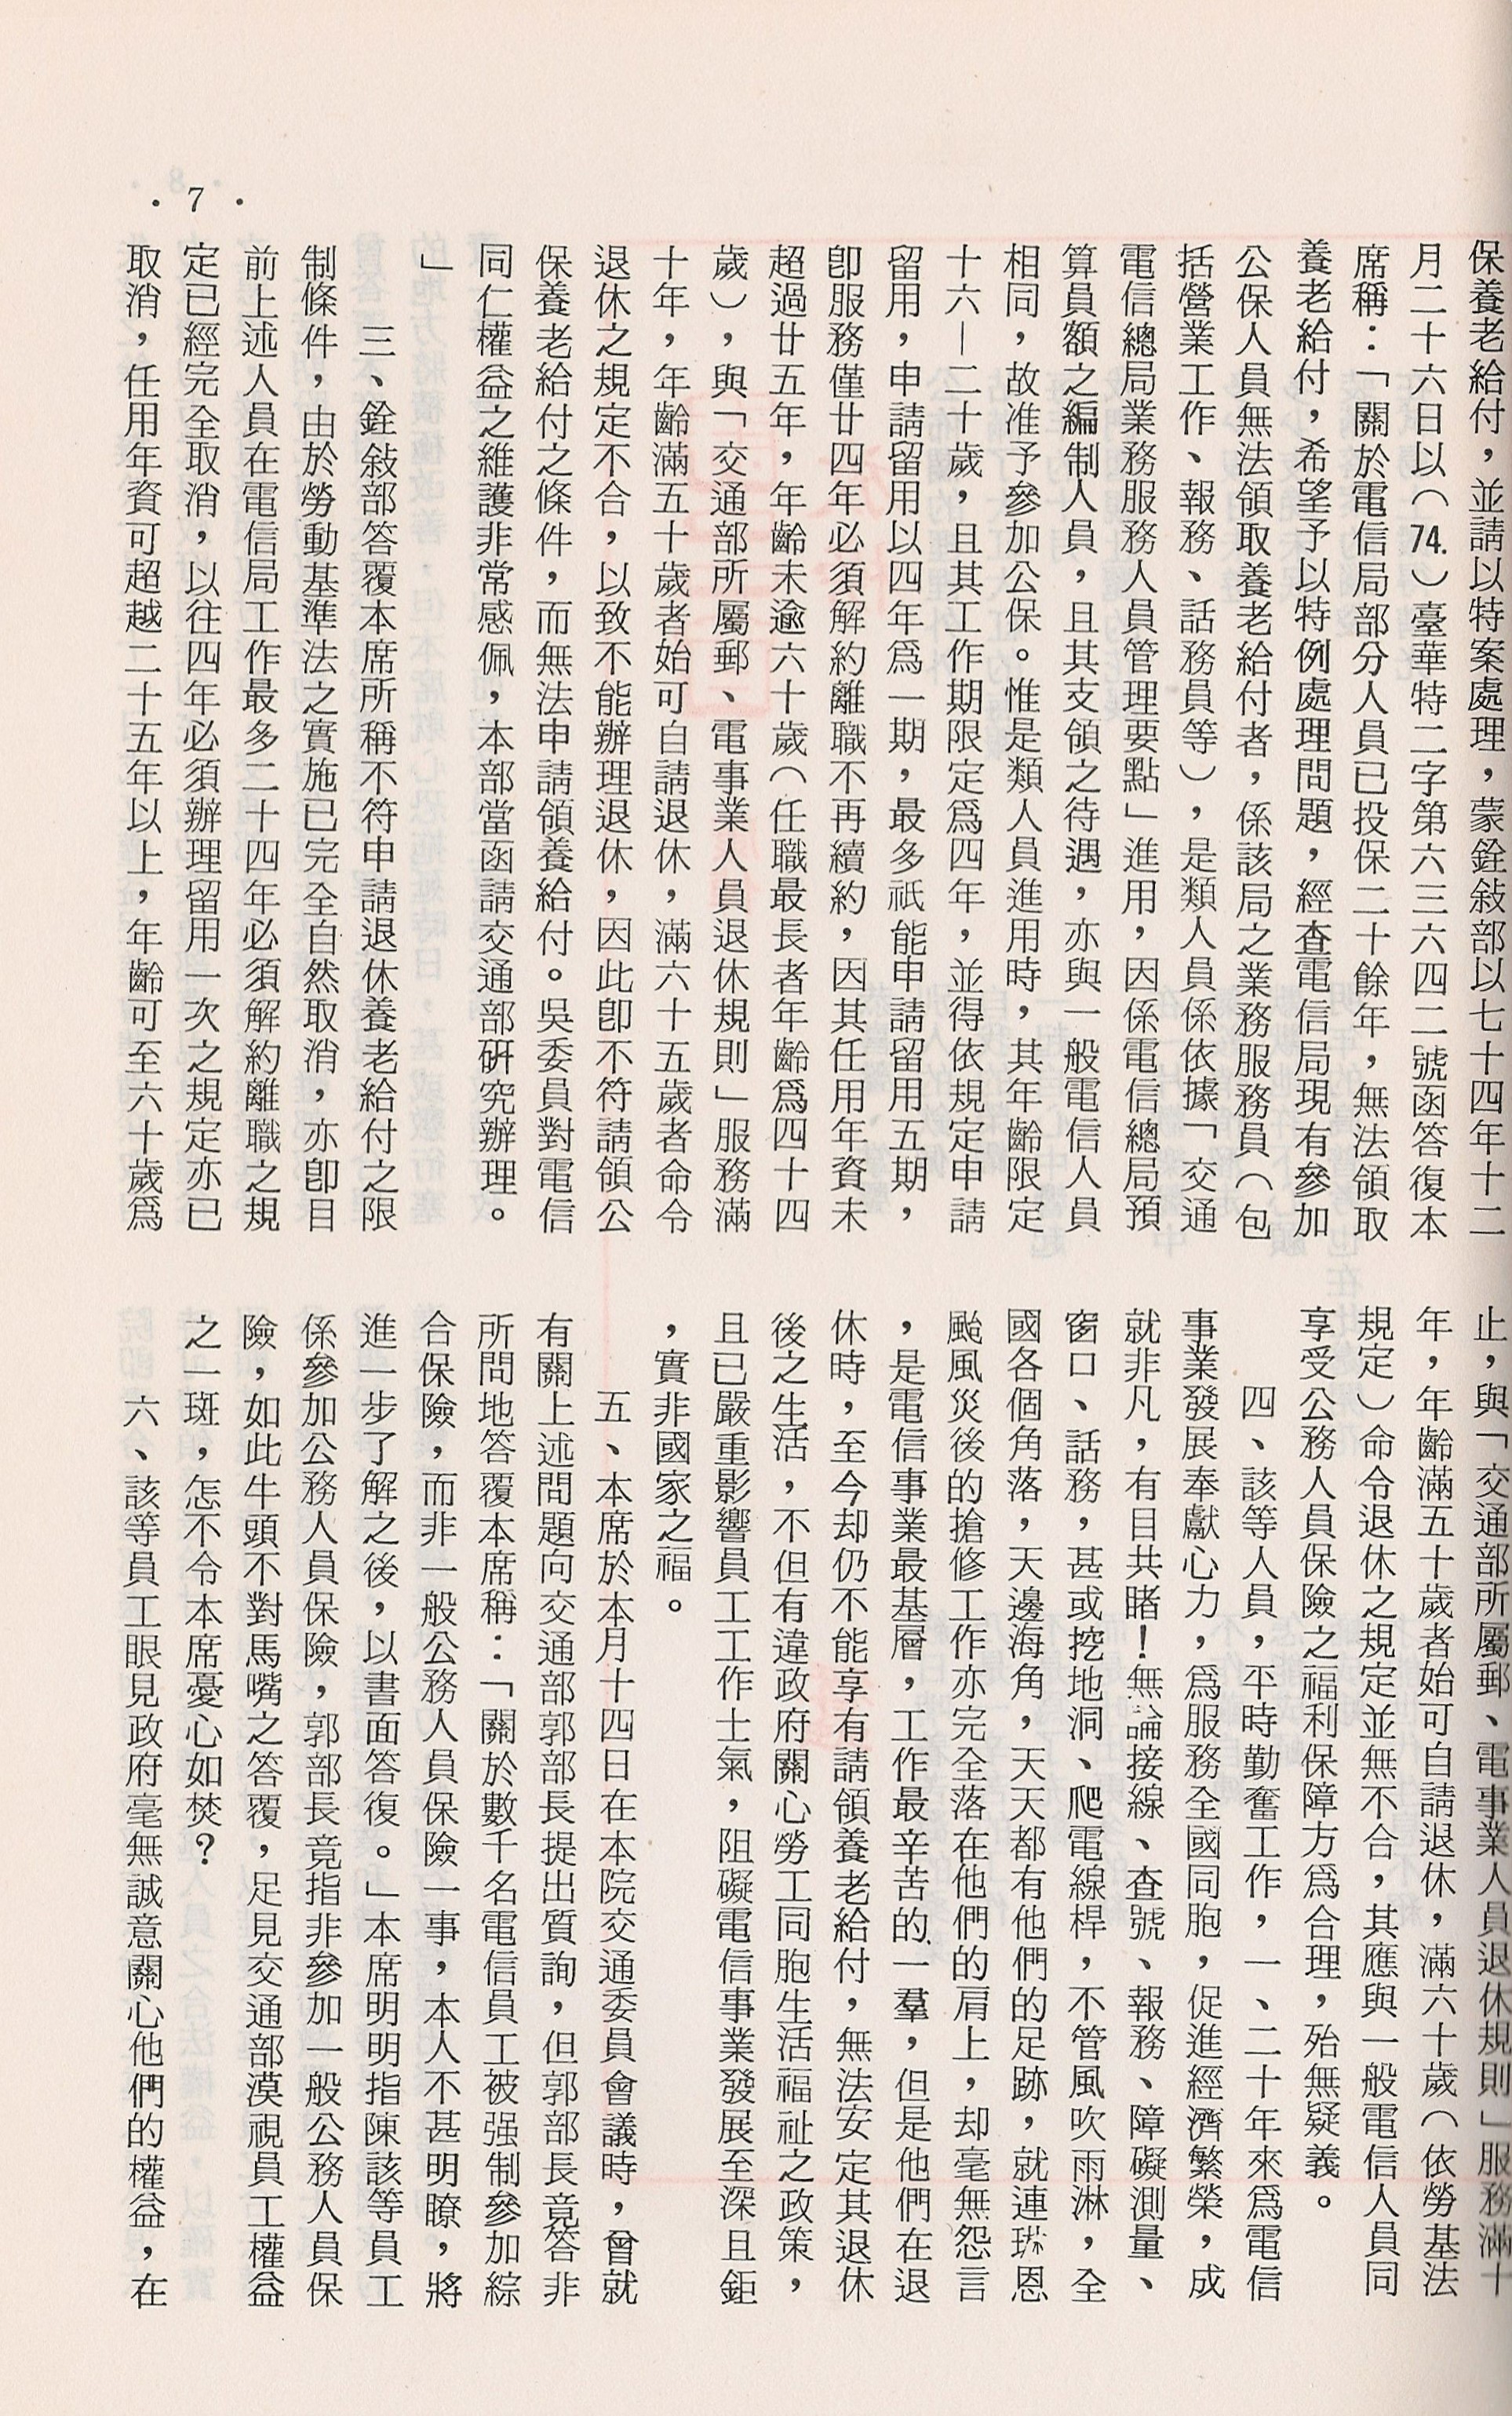 保養老給付，並請以特案處理，蒙銓敍部以七十四年十二
月二十六日以（74.）臺華特二字第六三六四二號函答復本
席稱：「關於電信局部分人員已投保二十餘年，無法領取
養老給付，希望予以特例處理問題，經查電信局現有參加
公保人員無法領取養老給付者，係該局之業務服務員（包
括營業工作、報務、話務員等），是類人員係依據「交通
電信總局業務服務人員管理要點」進用，因係電信總局預
算員額之編制人員，且其支領之待遇，亦與一般電信人員
相同，故准予參加公保。惟是類人員進用時，其年齡限定
十六—二十歲，且其工作期限定爲四年，並得依規定申請
留用，申請留用以四年爲一期，最多祇能申請留用五期，
卽服務僅廿四年必須解約離職不再續約，因其任用年資未
超過廿五年，年齡未逾六十歲（任職最長者年齡爲四十四
歲），與「交通部所屬郵、電事業人員退休規則」服務滿
十年，年齡滿五十歲者始可自請退休，滿六十五歲者命令
退休之規定不合，以致不能辦理退休，因此卽不符請領公
保養老給付之條件，而無法申請領養給付。吳委員對電信
同仁權益之維護非常感佩，本部當函請交通部研究辦理。
」
三、銓敍部答覆本席所稱不符申請退休養老給付之限
制條件，由於勞動基準法之實施已完全自然取消，亦卽目
前上述人員在電信局工作最多二十四年必須解約離職之規
定已經完全取消，以往四年必須辦理留用一次之規定亦已
取消，任用年資可超越二十五年以上，年齡可至六十歲爲
止，與「交通部所屬郵、電事業人員退休規則」服務滿十
年，年齡滿五十歲者始可自請退休，滿六十歲（依勞基法
規定）命令退休之規定並無不合，其應與一般電信人員同
享受公務人員保險之福利保障方爲合理，殆無疑義。
四、該等人員，平時勤奮工作，一、二十年來爲電信
事業發展奉獻心力，爲服務全國同胞，促進經濟繁榮，成
就非凡，有目共睹！無論接線、查號、報務、障礙測量、
窗口、話務，甚或挖地洞、爬電線桿，不管風吹雨淋，全
國各個角落，天邊海角，天天都有他們的足跡，就連琳恩
颱風災後的搶修工作亦完全落在他們的肩上，却毫無怨言
，是電信事業最基層，工作最辛苦的一羣，但是他們在退
休時，至今却仍不能享有請領養老給付，無法安定其退休
後之生活，不但有違政府關心勞工同胞生活福祉之政策，
且已嚴重影響員工工作士氣，阻礙電信事業發展至深且鉅
，實非國家之福。
五、本席於本月十四日在本院交通委員會議時，曾就
有關上述問題向交通部郭部長提出質詢，但郭部長竟答非
所問地答覆本席稱：「關於數千名電信員工被强制參加綜
合保險，而非一般公務人員保險一事，本人不甚明瞭，將
進一步了解之後，以書面答復。」本席明明指陳該等員工
係參加公務人員保險，郭部長竟指非參加一般公務人員保
險，如此牛頭不對馬嘴之答覆，足見交通部漠視員工權益
之一斑，怎不令本席憂心如焚？
六、該等員工眼見政府毫無誠意關心他們的權益，在
・7・